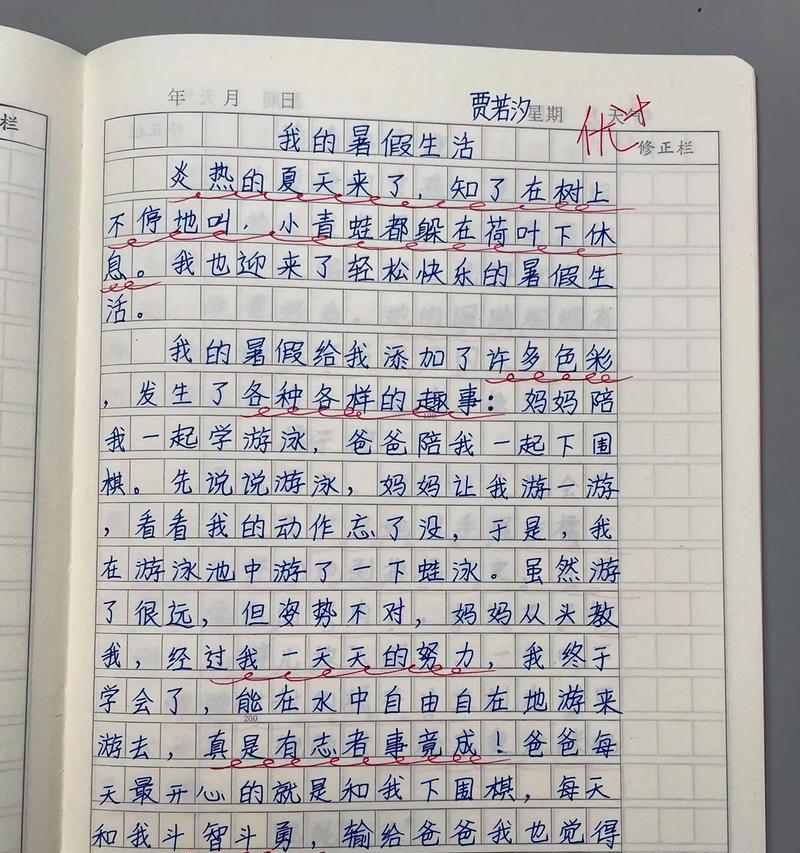 栏
年 月 日 贾若汐 星期 天气 优+
修正栏
我的暑假生活
炎热的夏天来了，知了在树上
不停地叫，小青蛙都躲在荷叶下休
息。我也迎来了轻松快乐的暑假生
活。
我的暑假给我添加了许多色彩
，发生了各种各样的趣事：妈妈陪
我一起学游泳，爸爸陪我一起下围
棋。先说说游泳，妈妈让我游一游
，看看我的动作忘了没，于是，我
在游泳池中游了一下蛙泳。虽然游
了很远，但姿势不对，妈妈从头教
我，经过我一天天的努力，我终于
学会了，能在水中自由自在地游来
200
游去，真是有志者事竟成！爸爸每
天最开心的就是和我下围棋，每天
和我斗智斗勇，输给爸爸我也觉得